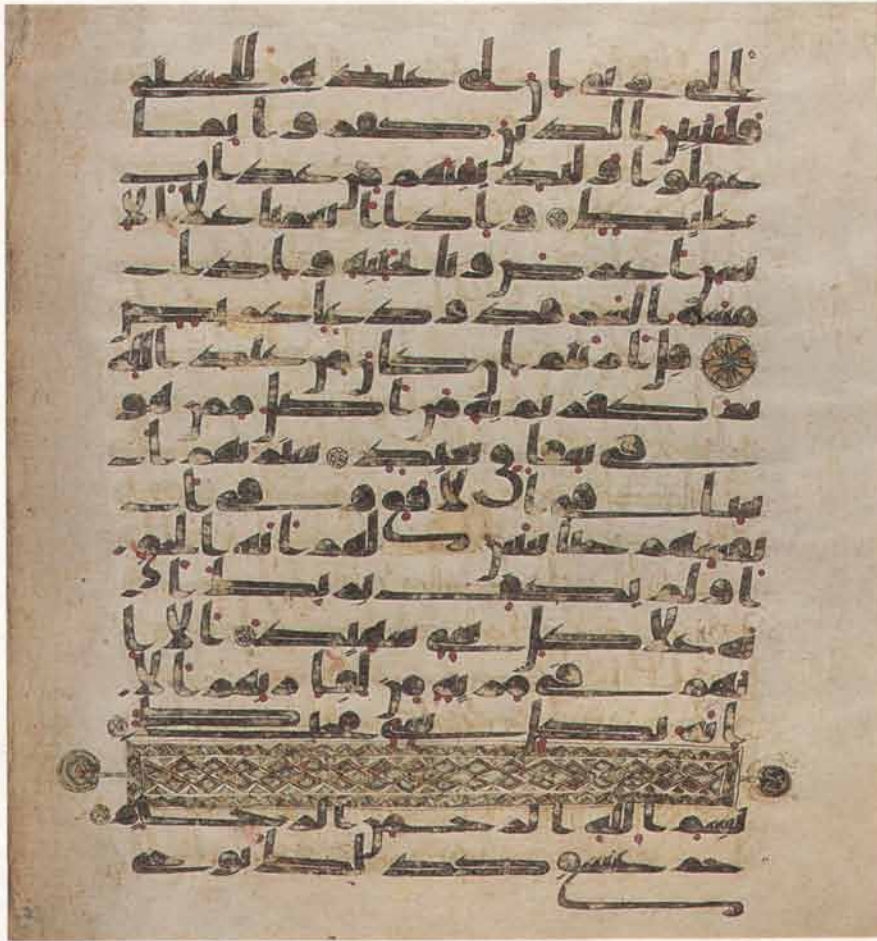 الى ربى ان لى عنده للحسنى
فلننبئن الذين كفروا بما
عملوا ولنذيقنهم من عذاب
غليظ واذا انعمنا على الا
نسن اعرض ونا بجنبه واذا
مسه الشر فذو دعا عريض
قل اريتم ان كان من عند الله
ثم كفرتم به من اضل ممن هو
فى شقاق بعيد سنريهم ا
يتنا فى الافاق وفى ا
نفسهم حتى يتبين لهم انه الحق
اولم يكف بربك ا
نه على كل شى شهيد الا ا
نهم فى مرية من لقا ربهم الا
انه بكل شى محيط
بسم الله الرحمن الرحيم
حم عسق كذلك يوحى